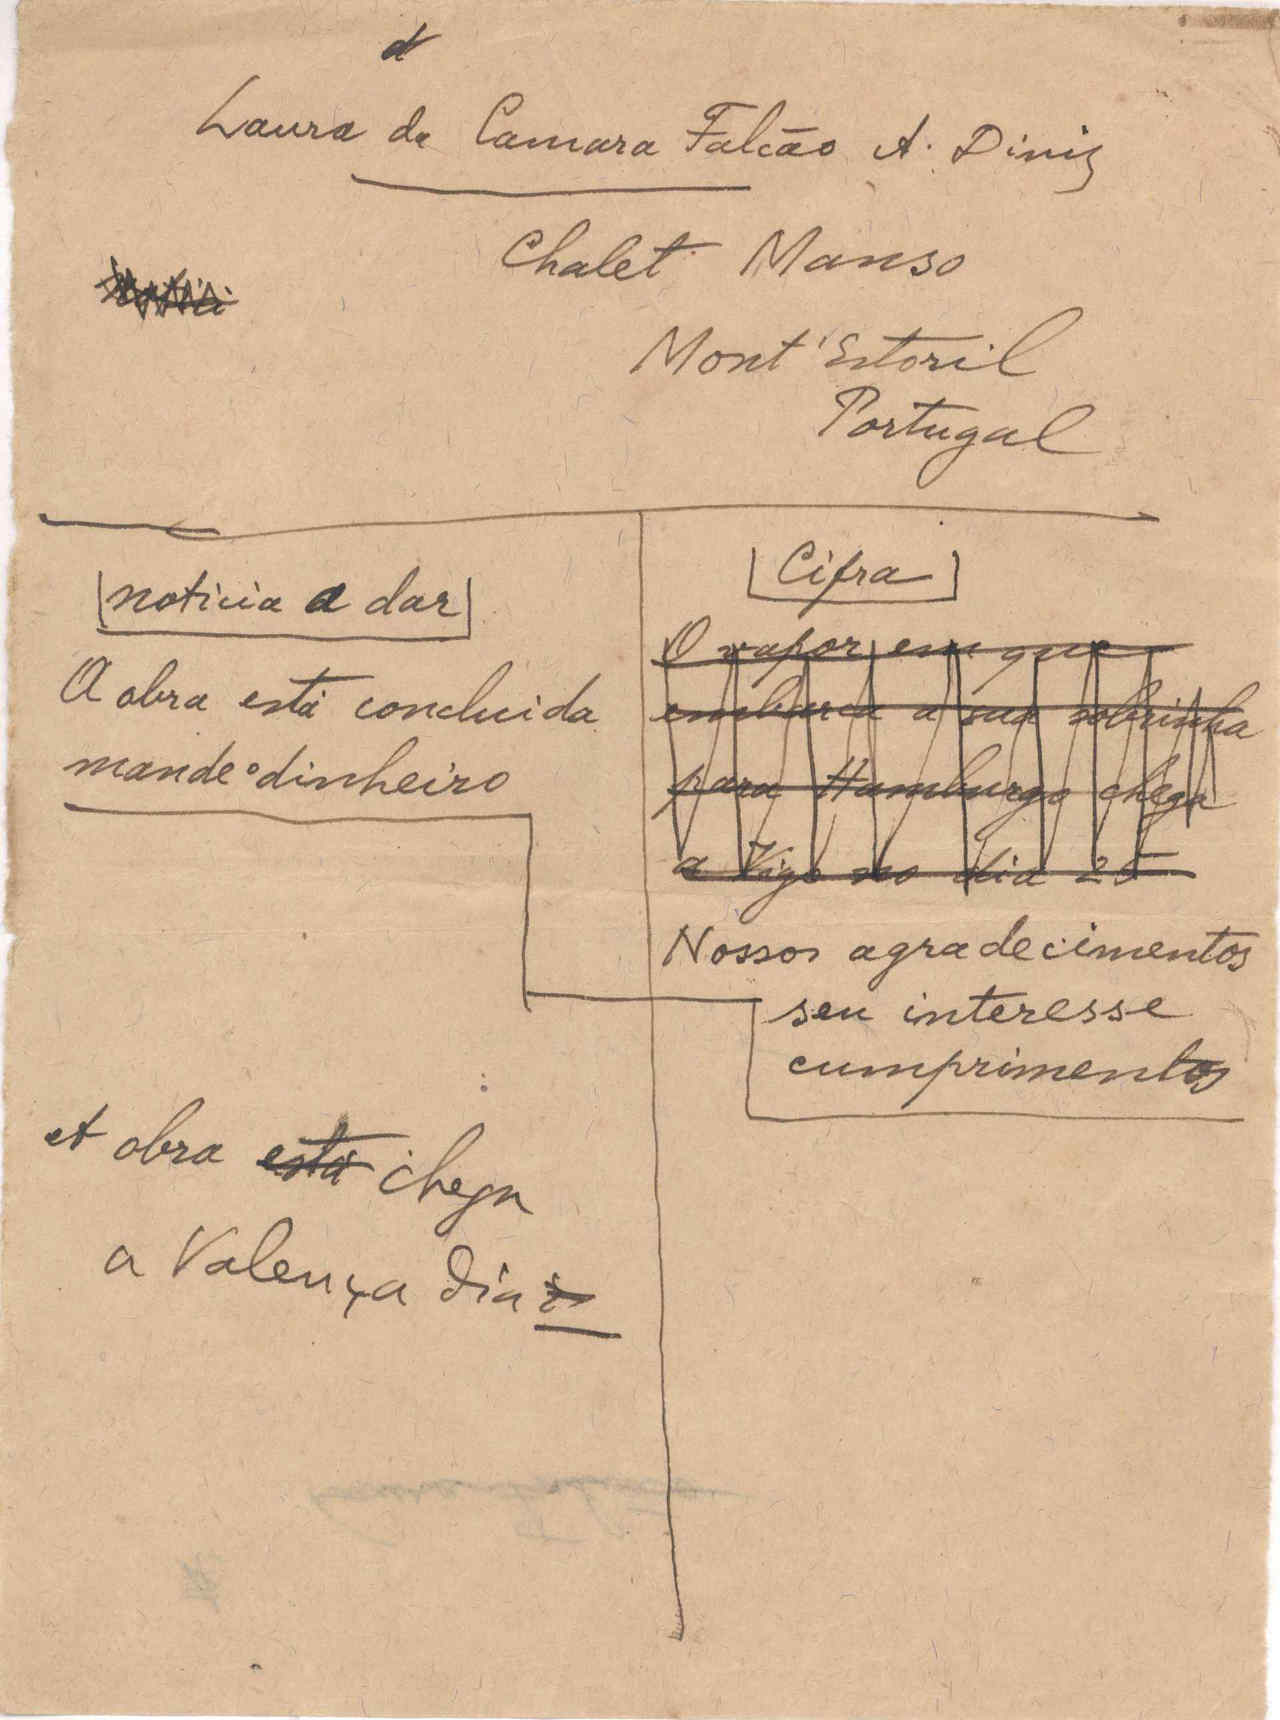 Laura da Camara Falcão A. Diniz
Chalet Manso
Mont'Estoril
Portugal
noticia a dar
A obra está concluida
mande o dinheiro
A obra está chega
a Valença dia
Cifra
O vapor em que
embarca a sua sobrinha
para Hamburgo chega
a Vigo no dia 25
Nossos agradecimentos
seu interesse
cumprimentos